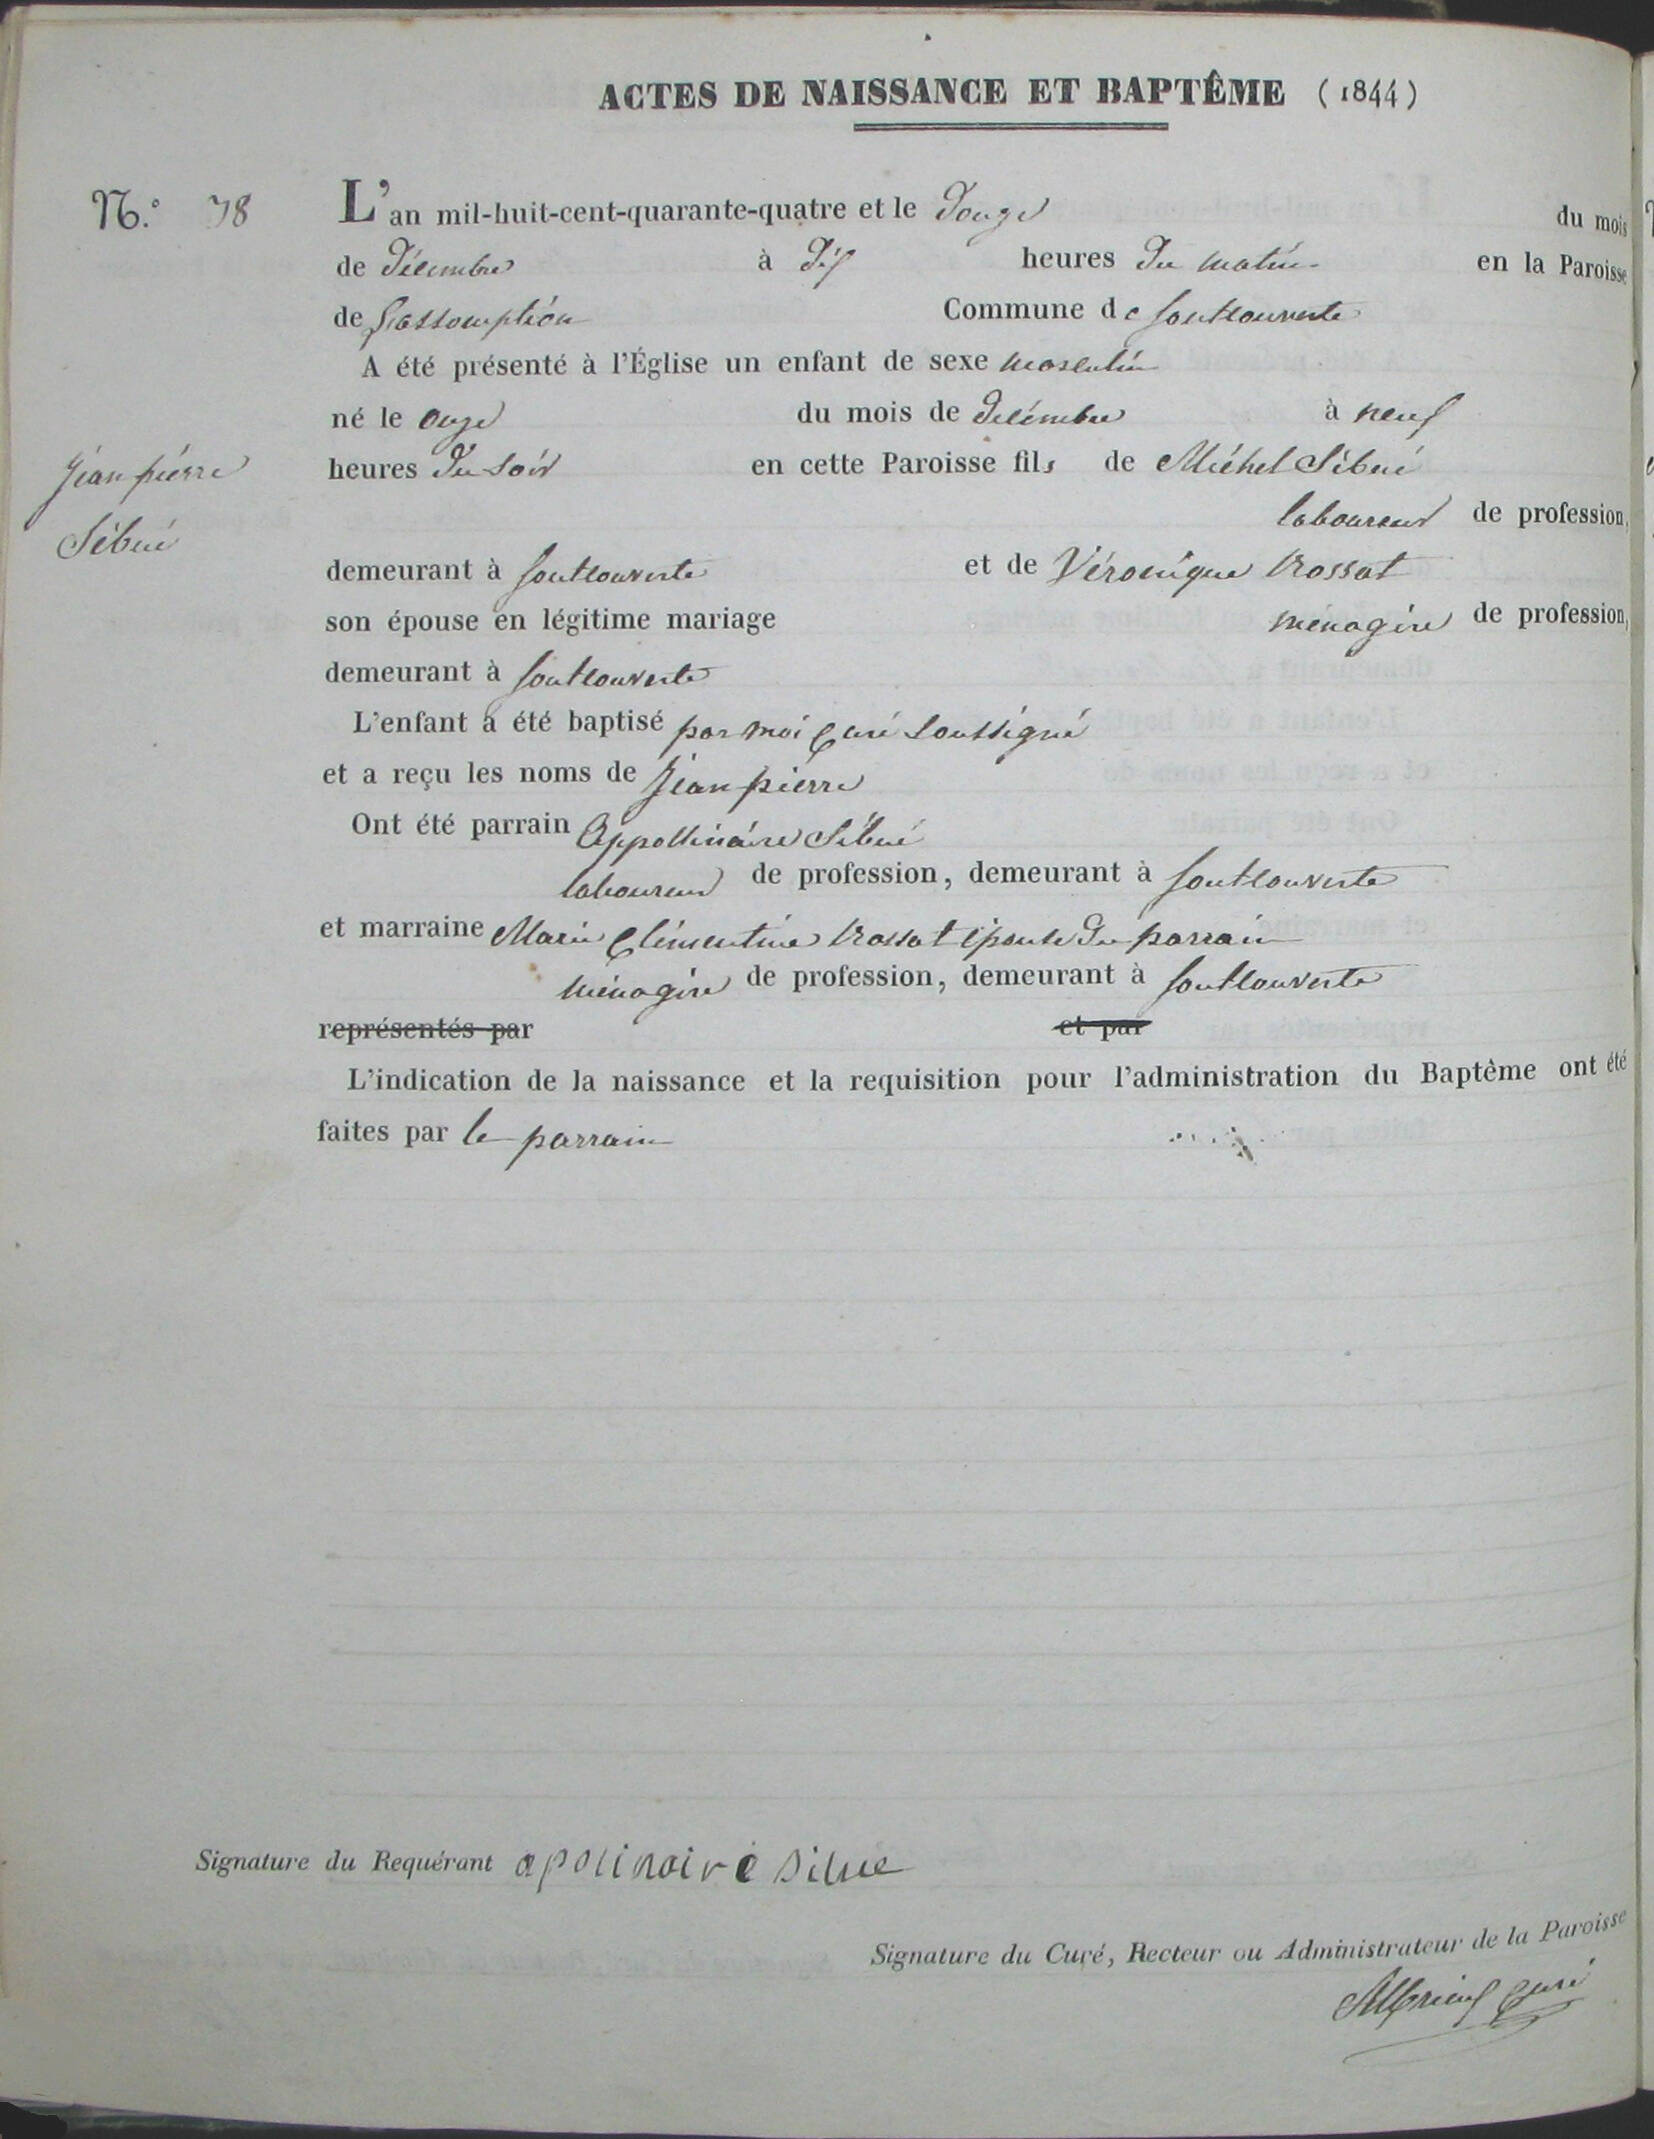 ACTES DE NAISSANCE ET BAPTÊME (1844)
N.° 78 L'an mil-huit-cent-quarante-quatre et le Douze du mois
de Décembre à Dix heures Du matin en la Paroisse
de L'assomption Commune de Fontcouverte
A été présenté à l'Église un enfant de sexe masculin
né le onze du mois de Décembre à neuf
Jean pierre heures Du soir en cette Paroisse fils de Michel Sibué
laboureur de profession,
Sibué
demeurant à fontcouverte et de Véronique Rossat
son épouse en légitime mariage ménagère de profession,
demeurant à fontcouverte
L'enfant a été baptisé par moi Curé soussigné
et a reçu les noms de Jean pierre
Ont été parrain Appollinaire Sibué
laboureur de profession, demeurant à fontcouverte
et marraine Marie Clémentine Rossat épouse Du parrain
ménagère de profession, demeurant à fontcouverte
représentés par et par
L'indication de la naissance et la requisition pour l'administration du Baptème ont été
faites par le parrain
Signature du Requérant apolinaire sibue
Signature du Curé, Recteur ou Administrateur de la Paroisse
curé